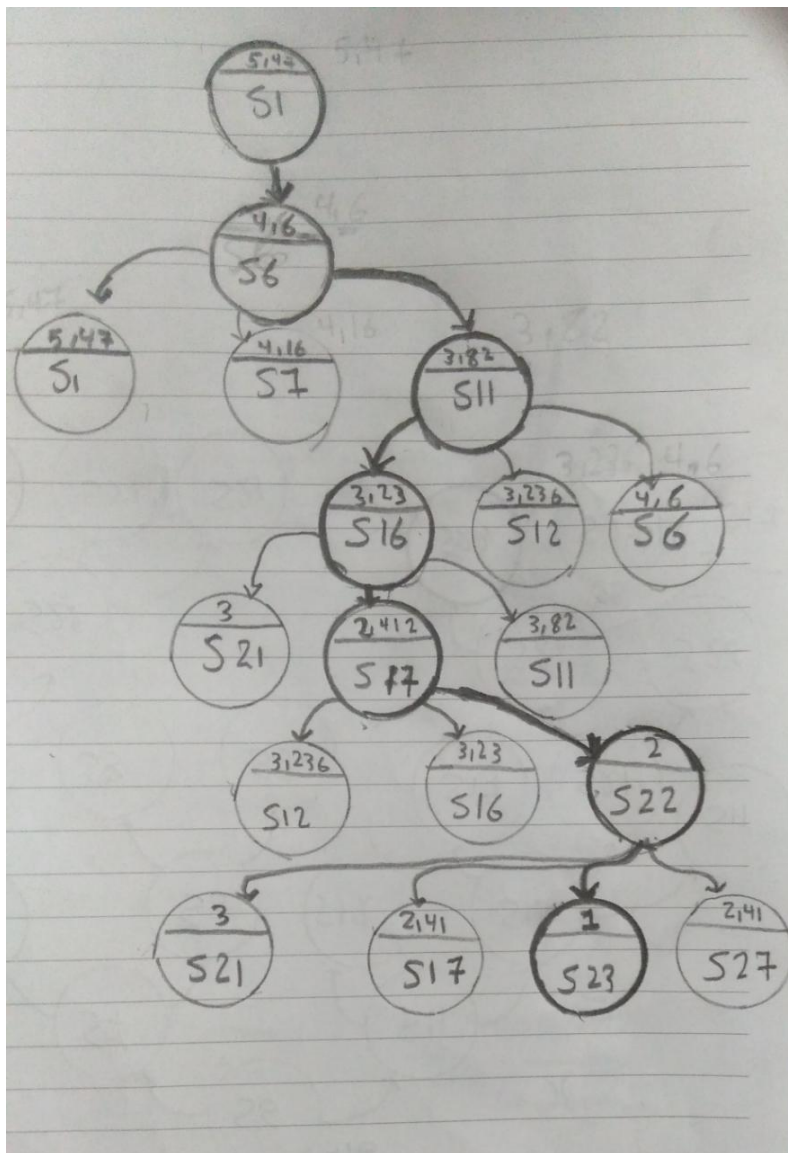 5,47
S1
4,6
S6
5,47
S1
4,16
S7
3,82
S11
3,23
S16
3,236
S12
4,6
S6
3
S21
2,412
S17
3,82
S11
3,236
S12
3,23
S16
2
S22
3
S21
2,41
S17
1
S23
2,41
S27